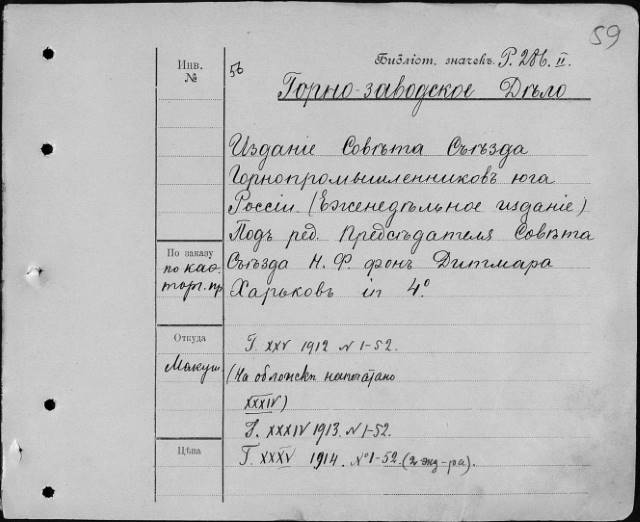 59
Инв. №
56
Библіот. значекъ Р. 286. II.
Горно-заводское Дѣло
Изданіе Совѣта Съѣзда
Горнопромышленниковъ юга
Россіи. (Еженедѣльное изданіе)
Подъ ред. Предсѣдателя Совѣта
Съѣзда Н. Ф. фонъ Дитмара
Харьковъ in 4°.
По заказу
по кат.
торг. пр
Откуда
Макуш.
Г. XXV 1912 N 1-52.
(На обложкѣ напечатано
XXXIV)
Г. XXXIV 1913. N 1-52.
Г. XXXV 1914. N° 1-52. (2 экз-ра).
Цѣна